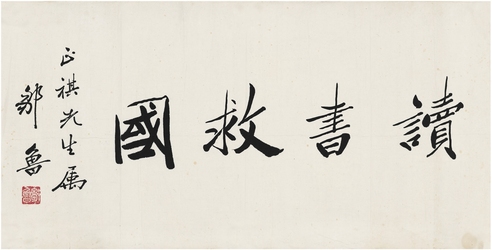 讀書救國
正祺先生屬
鄒魯